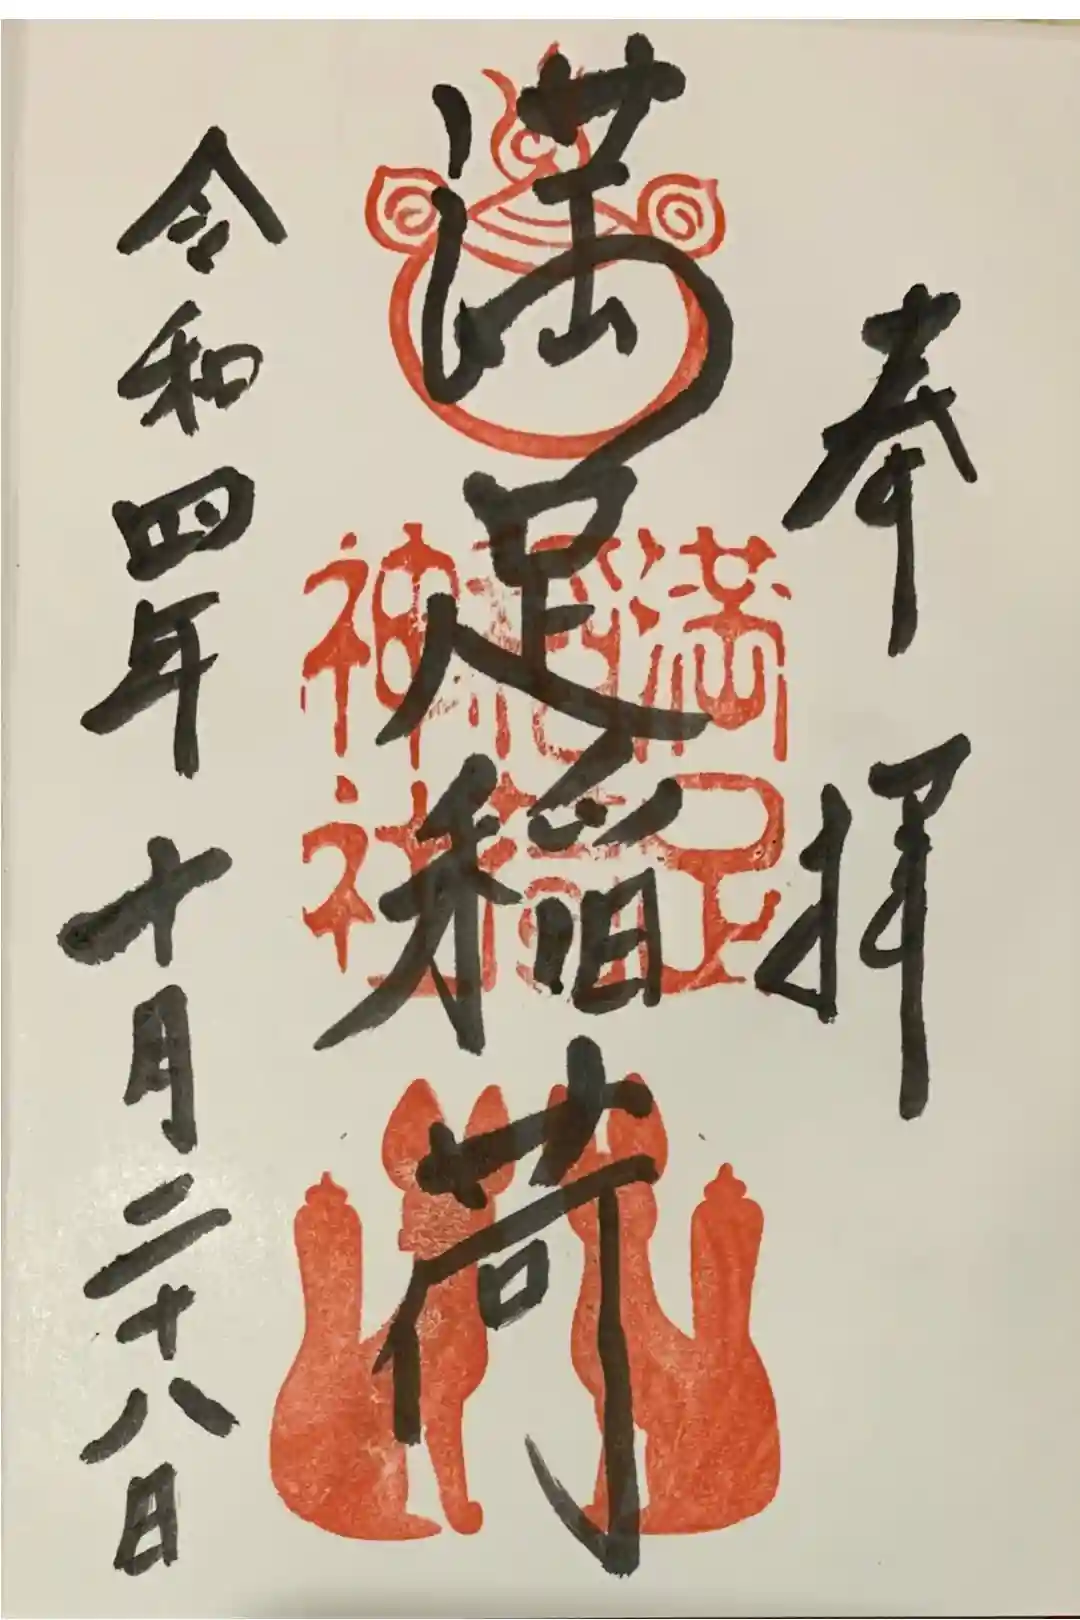 奉拝
満足稲荷
満足
稲荷
神社
令和四年十月二十八日